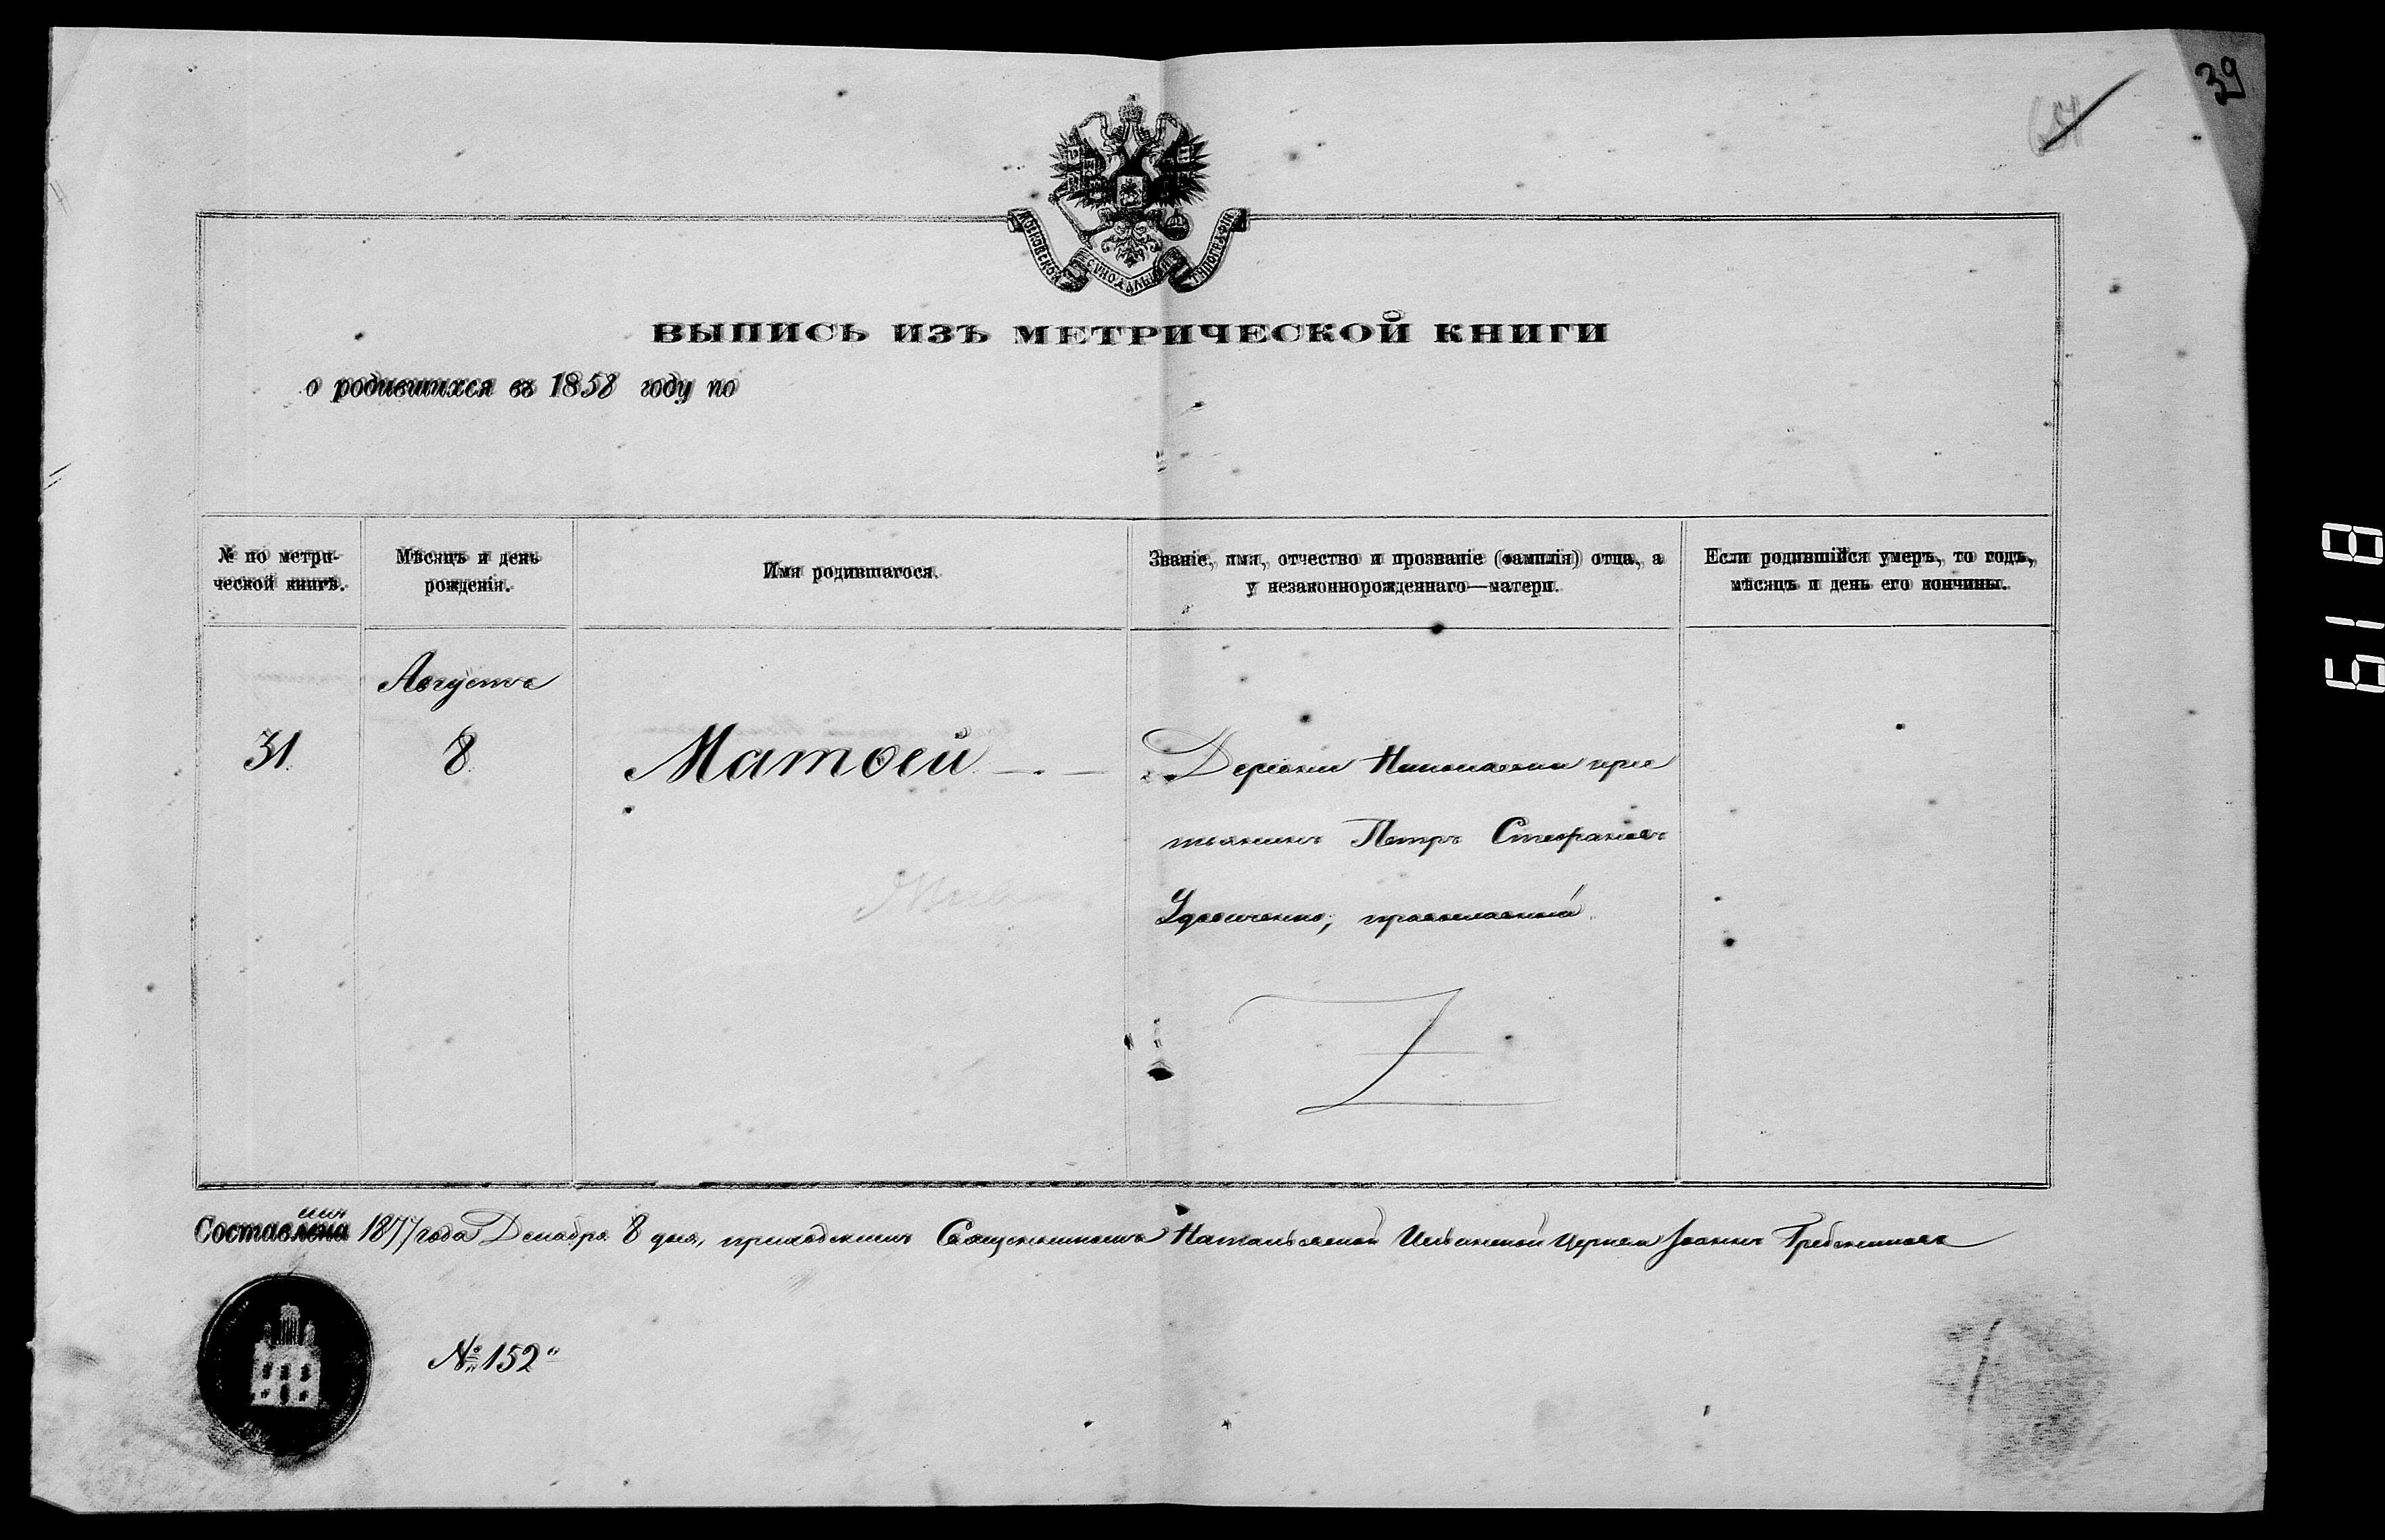 39
МОСКОВСКОЙ СѴНОДАЛЬНОЙ ТИПОГРАФІИ
ВЫПИСЬ ИЗЪ МЕТРИЧЕСКОЙ КНИГИ
о родившихся въ 1858 году по
№ по метри-
ческой книгѣ.
Мѣсяцъ и день
рожденія.
Имя родившагося.
Званіе, имя, отчество и прозваніе (фамилія) отца, а
у незаконнорожденнаго—матери.
Если родившійся умеръ, то годъ,
мѣсяцъ и день его кончины.
Августа
31.
8.
Матѳей
Деревни Николаевки крес
тьянинъ Петръ Стефановъ
православный.
Составлена 1877 года Декабря 8 дня, приходскимъ Священникомъ Церкви Іоанномъ
№ 152
618